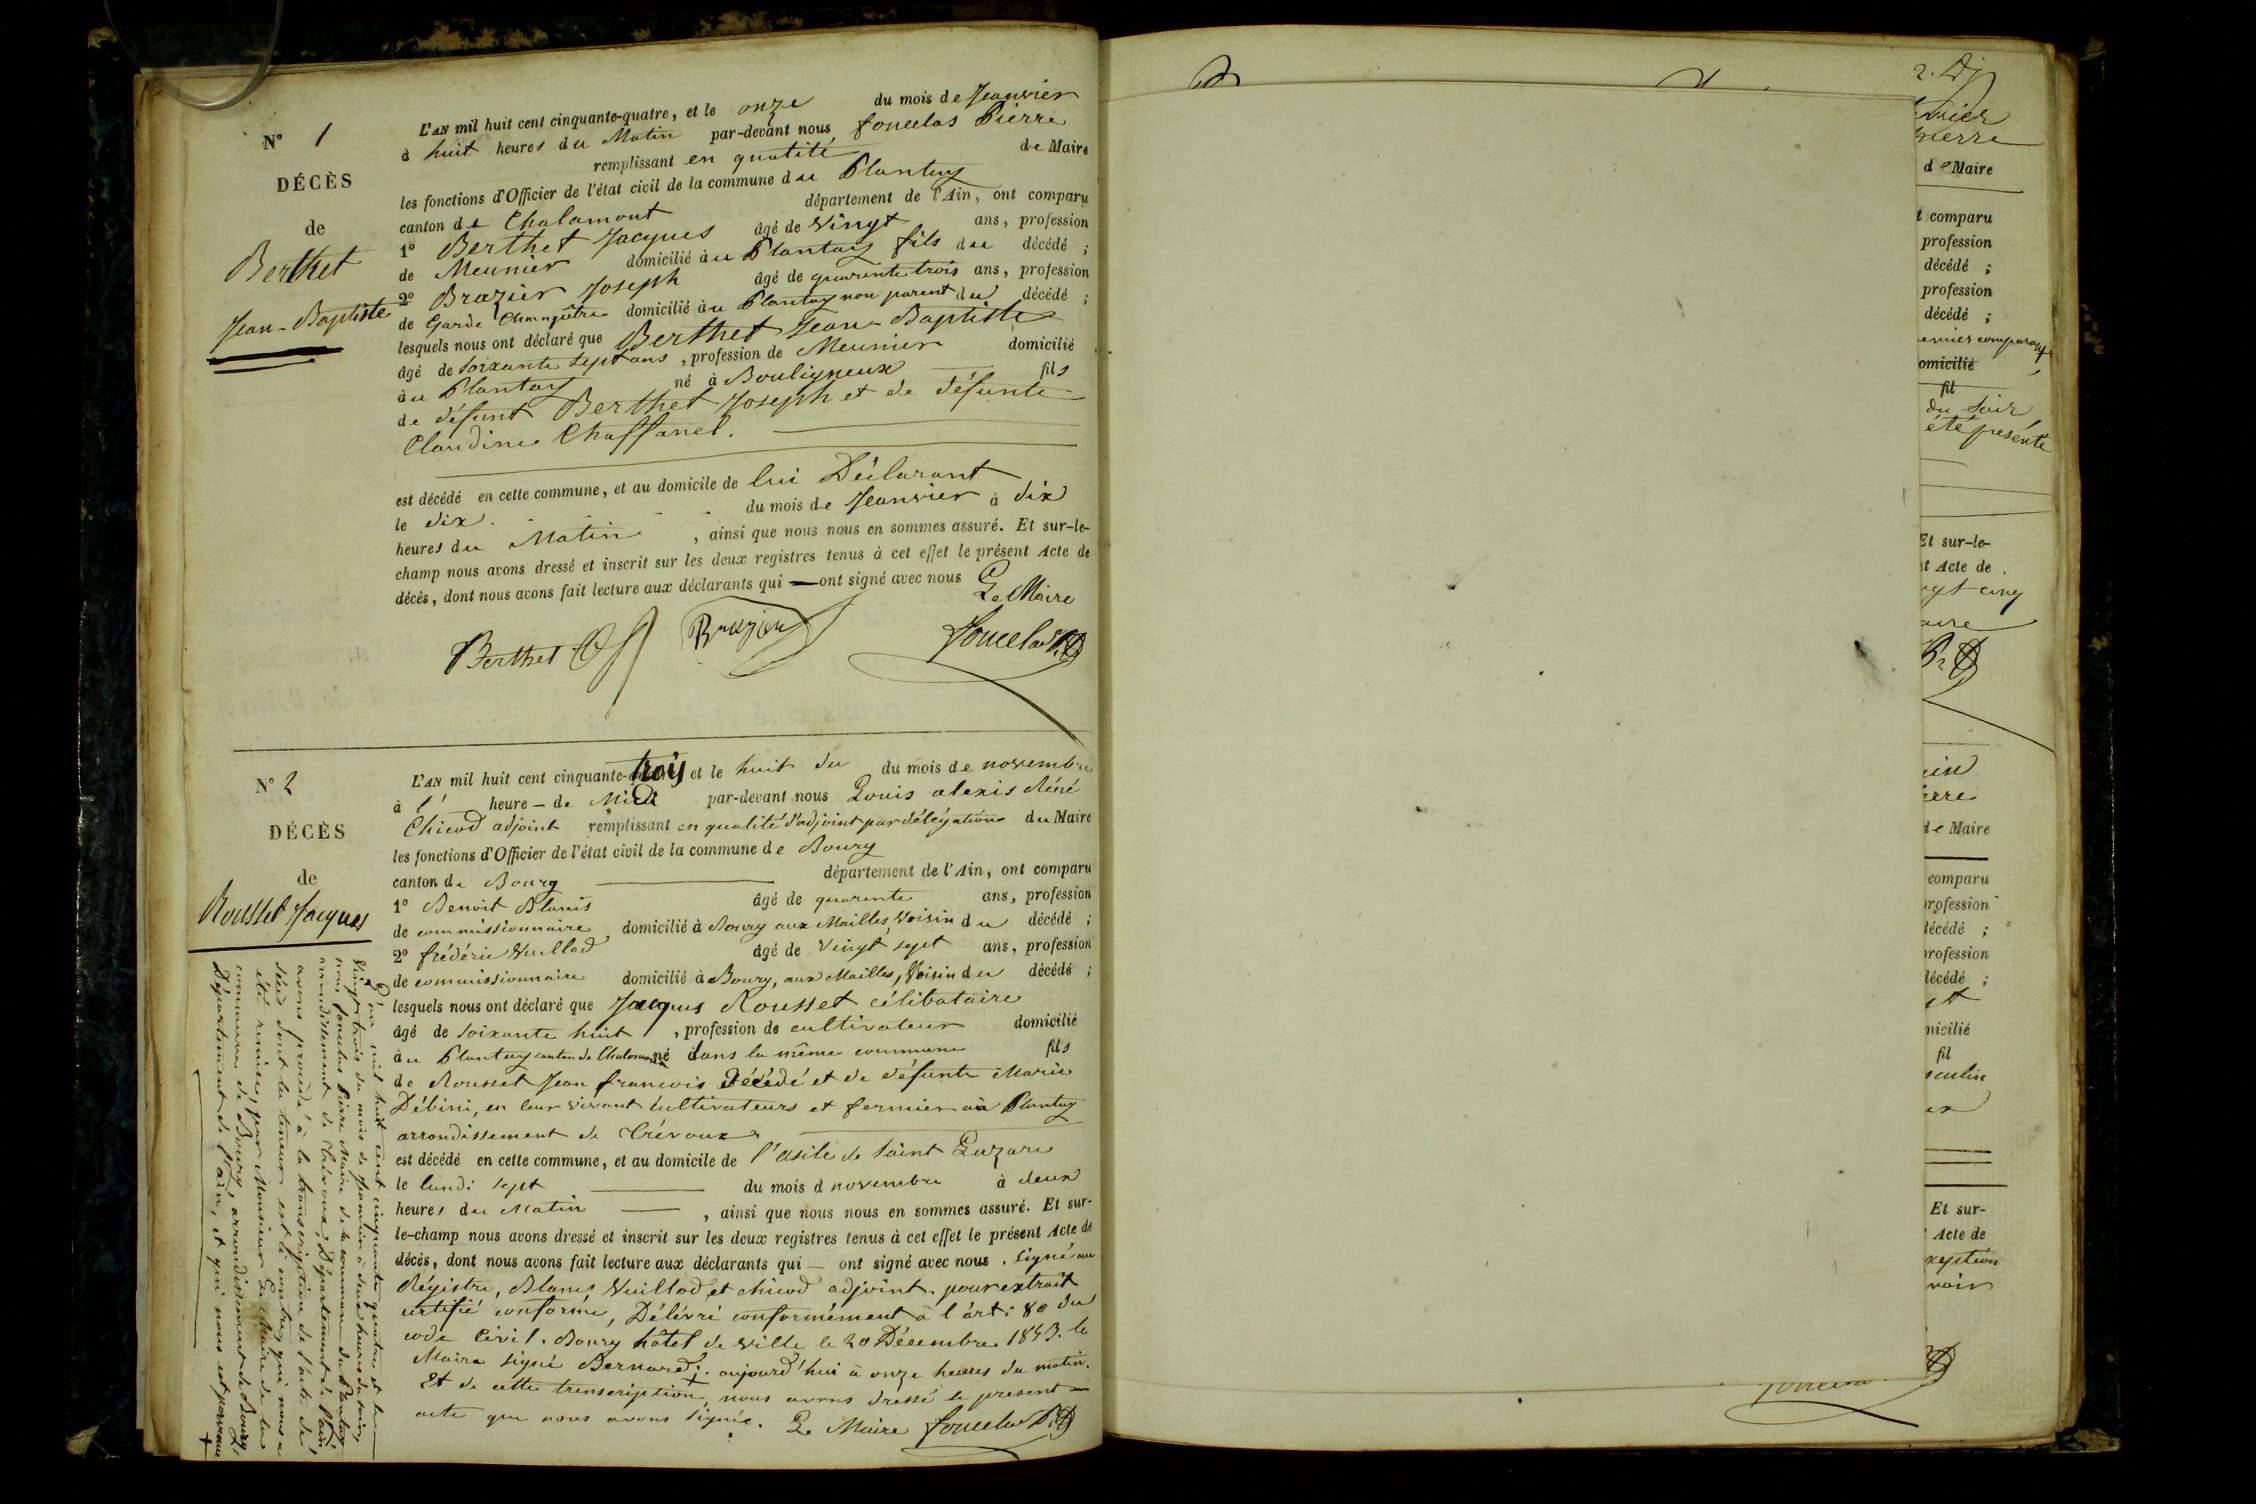 N° 1
DÉCÈS
de
Berthet
Jean-Baptiste
L'AN mil huit cent cinquante-quatre, et le onze du mois de Jeanvier
à huit heures du Matin par-devant nous foucelas Pierre
remplissant en qualité de Maire
les fonctions d'Officier de l'état civil de la commune du Plantay
canton de Chalamont département de l'Ain, ont comparu
1° Berthet Jacques âgé de Vingt ans, profession
de Meunier domicilié au Plantay fils du décédé ;
2° Brazier Joseph âgé de quarente trois ans, profession
de Garde Champêtre domicilié au Plantay non parent du décédé ;
lesquels nous ont déclaré que Berthet Jean-Baptiste
âgé de soixante sept ans, profession de Meunier domicilié
au Plantay né à Bouligneux fils
de défunt Berthet Joseph et de défunte
Claudine Chaffanel.
est décédé en cette commune, et au domicile de lui Déclarant
le dix. du mois de Jeanvier à dix
heures du Matin, ainsi que nous nous en sommes assuré. Et sur-le-
champ nous avons dressé et inscrit sur les deux registres tenus à cet effet le présent Acte de
décès, dont nous avons fait lecture aux déclarants qui — ont signé avec nous
Le Maire
Berthet Brazier foucelas
N° 2
DÉCÈS
de
Rousset Jacques
L'AN mil huit cent cinquante-trois et le huit du du mois de novembre
à l' heure – de Midi par-devant nous Louis alexis Réné
Chicod adjoint remplissant en qualité d'adjoint par délégation du Maire
les fonctions d'Officier de l'état civil de la commune de Bourg
canton de Bourg département de l'Ain, ont comparu
1° Benoit Blanis âgé de quarente ans, profession
de commissionnaire domicilié à Bourg aux Mailles, Voisin du décédé ;
2° frédéric Vuillod âgé de Vingt sept ans, profession
de commissionnaire domicilié à Bourg, aux Mailles, Voisin du décédé ;
lesquels nous ont déclaré que Jacques Rousset célibataire
âgé de soixante huit, profession de cultivateur domicilié
au Plantay canton de Chalamont né dans la même commune fils
de Rousset Jean francois décédé et de défunte Marie
Débini, en leur vivant cultivateurs et fermier au Plantay
arrondissement de Trévoux
est décédé en cette commune, et au domicile de l'asile de Saint Lazare
le lundi sept du mois d novembre à deux
heures du Matin, ainsi que nous nous en sommes assuré. Et sur-
le-champ nous avons dressé et inscrit sur les deux registres tenus à cet effet le présent Acte de
décès, dont nous avons fait lecture aux déclarants qui — ont signé avec nous. Signé au
Régistre, Blanis Vuillod, et chicod adjoint. pour extrait
certifié conforme, Délévré conformément à l'art: 80 du
code Civil. Bourg hôtel de Ville le 20 Décembre 1853. le
Maire signé Bernard; aujourd'hui à onze heures du matin.
Et de cette transcription, nous avons dréssé le present
acte que nous avons signé. Le Maire foucelas
L'an mil huit cent cinquante quatre et le
Vingt trois du mois de Jeanvier à deux heures du soir,
nous foucelas Pierre Maire de la commune du Plantay
arrondissement de Trévoux, Département de l'ain
avons procédé à la transcription de l'acte de
décès dont la teneur est ci contre, qui nous a
été remise par Monsieur Le Maire de la
commune de Bourg, arrondissement de Bourg,
Département de l'ain, et qui nous est parvenu
vier
ierre
de Maire
t comparu
profession
décédé ;
profession
décédé ;
comparant
omicilié
fil
du Soir
été présenté
Et sur-le-
t Acte de
gt cinq
aire
de Maire
comparu
profession
décédé ;
profession
décédé ;
micilié
fil
sculin
Et sur-
Acte de